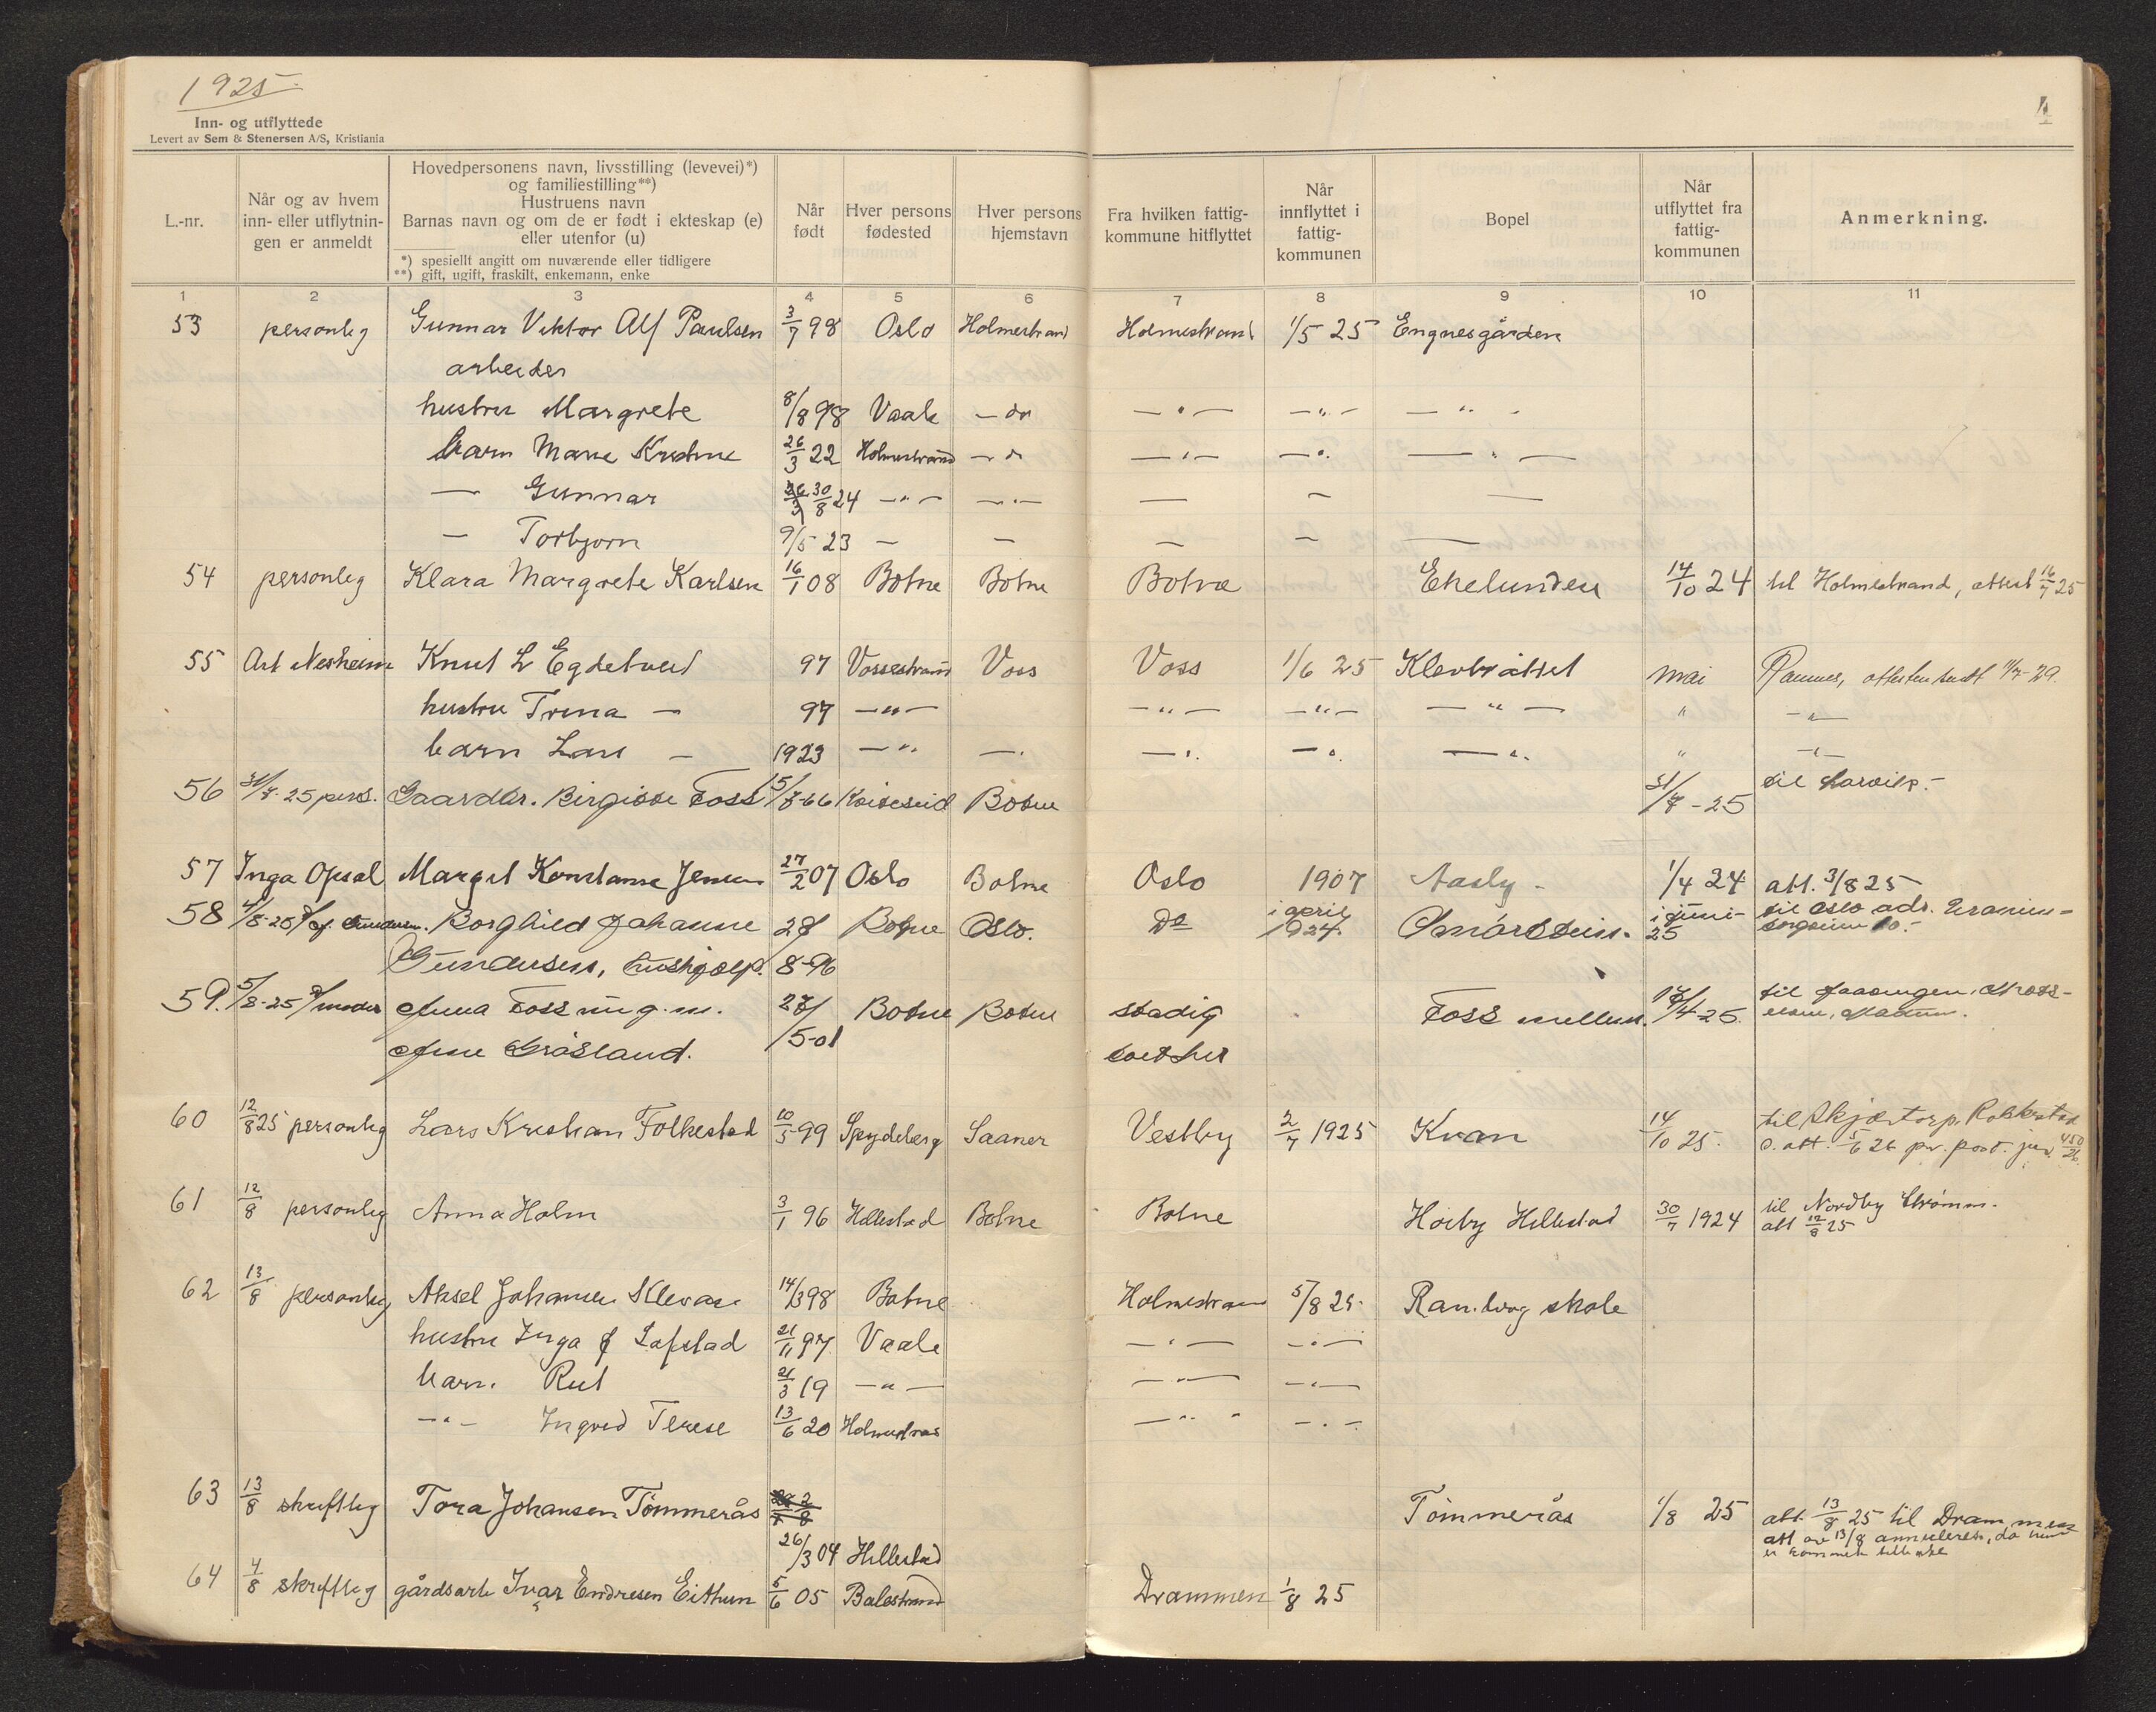 1925
4
Inn- og utflyttede
Levert av Sem & Stenersen A/S, Kristiania
L.-nr.
Når og av hvem inn- eller utflytnin- gen er anmeldt
Hovedpersonens navn, livsstilling (levevei)*) og familiestilling**) Hustruens navn Barnas navn og om de er født i ekteskap (e) eller utenfor (u)
*) spesiellt angitt om nuværende eller tidligere
**) gift, ugift, fraskilt, enkemann, enke
Når født
Hver persons fødested
Hver persons hjemstavn
Fra hvilken fattig- kommune hitflyttet
Når innflyttet i fattig- kommunen
Bopel
Når utflyttet fra fattig- kommunen
Anmerkning.
1 2 3 4 5 6 7 8 9 10 11
53 personlig Gunnar Viktor Alf Paulsen 3/7 98 Oslo Holmestrand Holmestrand 1/5 25 Engnesgården
arbeider
hustru Margrete 8/8 98 Vaale — do — " — — " — — " —
barn Marie Kristine 26/3 22 Holmestrand — do — " — — " — " —
— Gunnar 30/8 24 — " — — " — — — —
— Torbjorn 9/5 23 — — — — —
54 personlig Klara Margrete Karlsen 16/1 08 Botne Botne Botne Ekelunden 14/10 24 til Holmestrand, attest 16/7 25
55 Art Nesheim Knut L Egdetveit 97 Vossestrand Voss Voss 1/6 25 Klevbråttet mai Ramnes, attesten sendt 11/7-29.
hustru Trina — 97 — " — — " — — " — — " — " — " —
barn Lars — 1923 — " — " — " — " — " " — " —
56 31/7-25 pers. Gaardbr. Birgitte Foss 15/7-66 Kviteseid Botne 31/7-25 til Larvik.-
57 Inga Opsal Margit Konstanse Jensen 27/2 07 Oslo Botne Oslo 1907 Aasly - 1/4 24 att. 3/8 25
58 4/8-25 Borghild Johanne 28 Botne Oslo. Do i april 1924. i juni- 25 til Oslo adr.
Gundersen, hushjælp. 8-96
59. 5/8-25 moder Anna Foss nu g.m. 27/5-01 Botne Botne stadig Foss mellem. 17/4-25. til
boet her
60 12/8 25 personlig Lars Kristian Folkestad 10/5 99 Spydeberg Saaner Vestby 2/7 1925 Kvan 14/10 25. til Skjætorp, Rakkestad
att. 5/6 26 pr. post. jur. 450/26.
61 12/8 personlig Anna Holm 3/1 96 Hillestad Botne Botne Hoiby Hillestad 30/7 1924 til Nordby Strømm.
att 12/8 25
62 13/8 personlig Aksel Johansen Klevan 14/3 98 Botne Holmestrand 5/8 25 Ramberg skole
hustru Inga f Lofstad 21/11 97 Vaale — " — — " —
barn. Rut 21/3 19 — " — — " — — " —
— " — Ingrid Terese 13/6 20 Holmestrand — " " — " —
63 13/8 skriftlig Tora Johansen Tömmerås 26/3 04 Hillestad Tömmerås 1/8 25 att. 13/8 25 til Drammen
att av 13/8 annuleres, da hun
er kommet tilbake
64 4/8 skriftlig gårdsarb Ivar Endresen Eithun 5/6 05 Balestrand Drammen 1/8 25